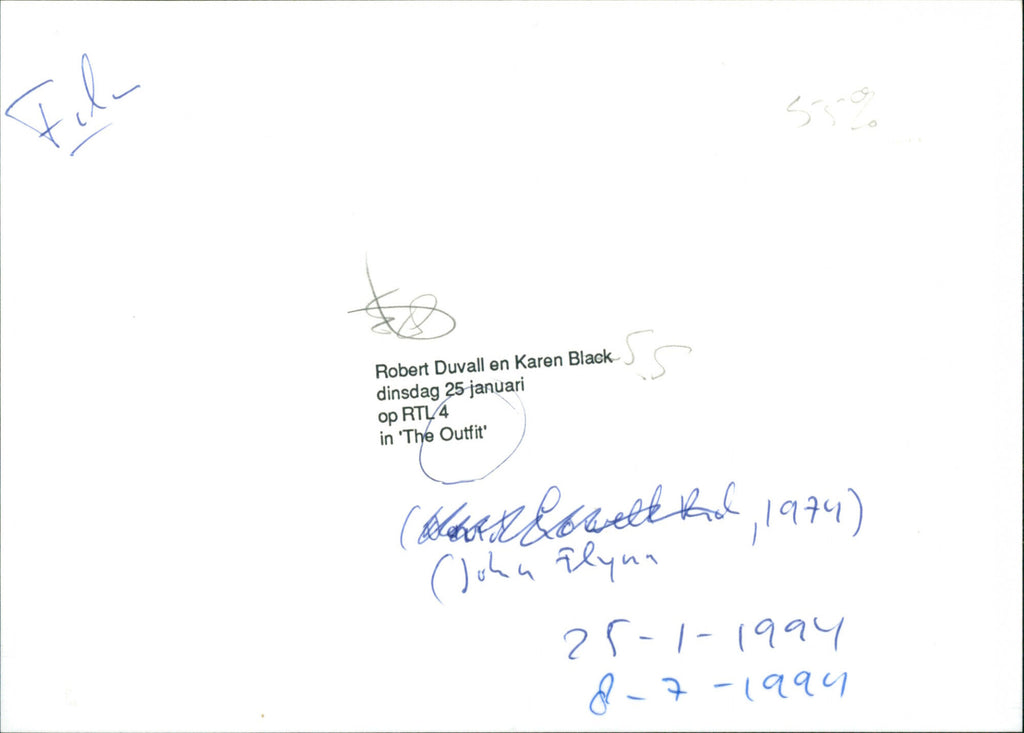 Film
55%
Robert Duvall en Karen Black 55
dinsdag 25 januari
op RTL 4
in 'The Outfit'
, 1974)
(John Flynn
25-1-1994
8-7-1994